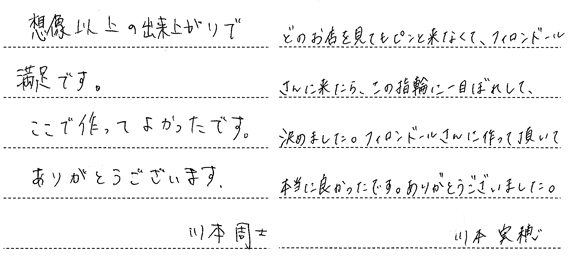 想像以上の出来上がりで
満足です。
ここで作ってよかったです。
ありがとうございます.
川本周士
どのお店を見てもピンと来なくて、フィロンドール
さんに来たら、この指輪に一目ぼれして、
決めました。フィロンドールさんに作って頂いて
本当に良かったです。ありがとうございました。
川本実穂